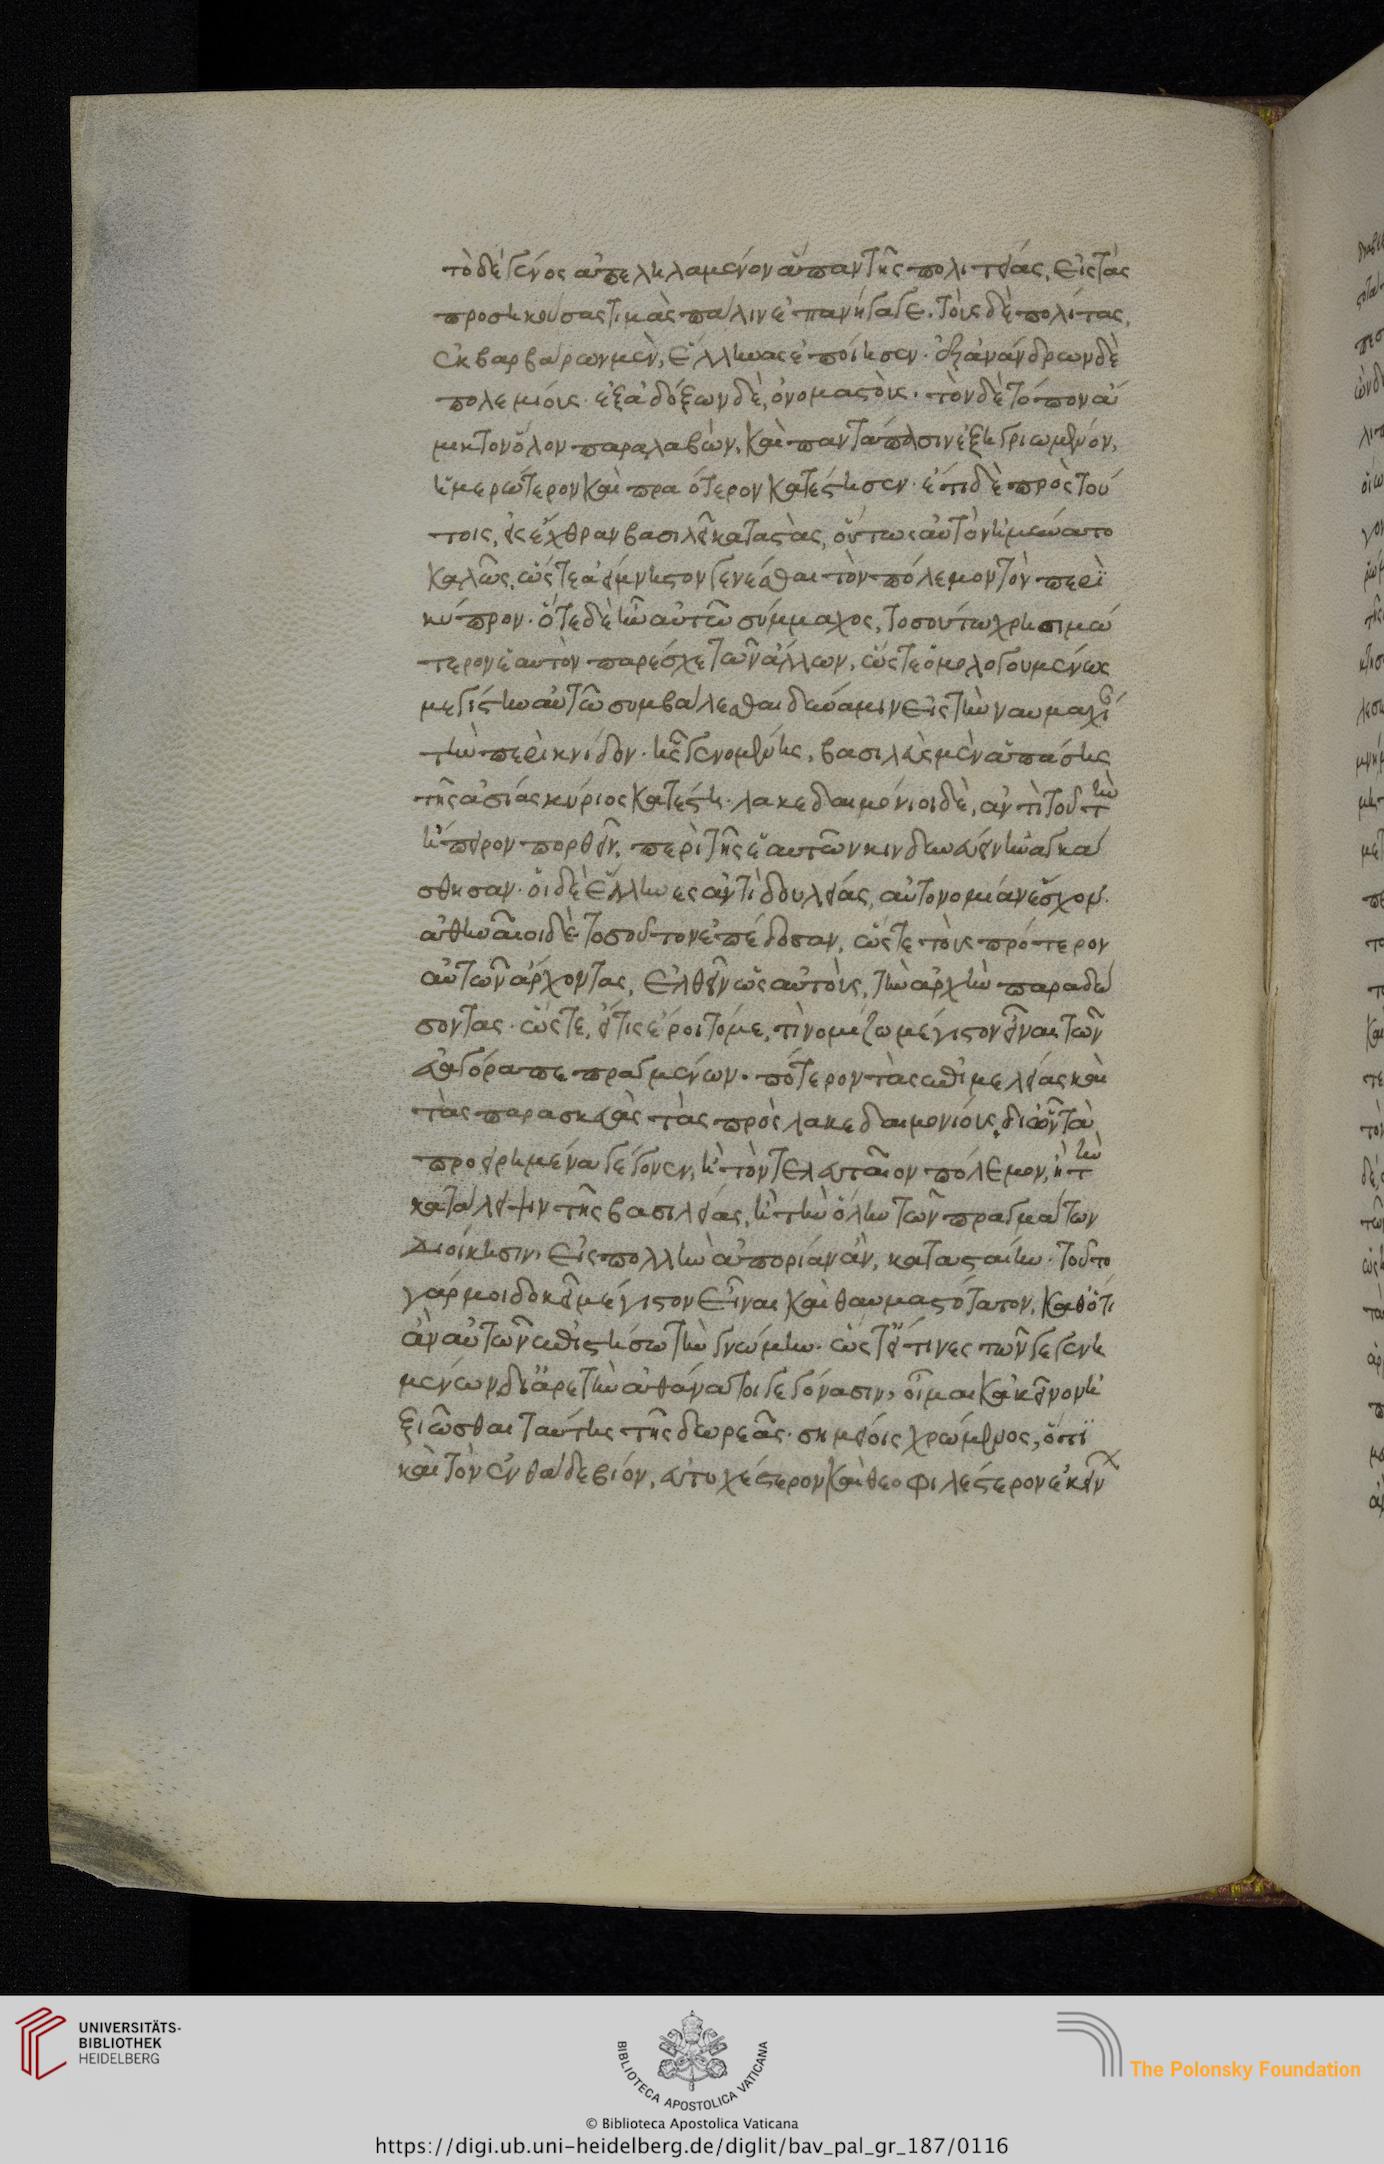 τὸ δὲ γένος ἀπεληλαμένον ἁπάντης πολιτείας, εἰς τὰς
προσηκούσας τιμὰς πάλιν ἐπανήγαγε. τοὺς δὲ πολίτας,
ἐκ βαρβάρων μὲν, ἕλληνας ἐποίησεν. ἐξ ἀνάνδρων δὲ
πολεμίους. ἐξ ἀδόξων δὲ, ὀνομαστοὺς. τὸν δὲ τόπον ἄ
μικτον ὅλον παραλαβὼν, καὶ παντάπασιν ἐξηγριωμένον,
ἡμερώτερον καὶ πραότερον κατέστησεν. ἔτι δὲ πρὸς τού
τοις, εἰς ἔχθραν βασιλεῖ καταστὰς, οὕτως αὐτὸν ἠμύνατο
καλῶς, ὥστε ἀείμνηστον γενέσθαι τὸν πόλεμον τὸν περὶ
κύπρον. ὅτε δὲ ἦν αὐτῶ σύμμαχος, τοσούτω χρησιμώ
τερον ἑαυτὸν παρέσχε τῶν ἄλλων, ὥστε ὁμολογουμένως
μεγίστην αὐτῶ συμβαλέσθαι δύναμιν εἰς τὴν ναυμαχί
τὴν περὶ κνίδον. ἧς γενομένης, βασιλεὺς μὲν ἁπάσης
τῆς ἀσίας κύριος κατέστη. λακεδαιμόνιοι δὲ, ἀντὶ τοῦ τὴν
ἤπειρον πορθεῖν, περὶ τῆς ἑαυτῶν κινδυνεύειν ἠναγκά
σθησαν. οἱ δὲ ἕλληνες ἀντὶ δουλείας, αὐτονομίαν ἔσχον.
ἀθηναῖοι δὲ τοσοῦτον ἐπέδοσαν, ὥστε τοὺς πρότερον
αὐτῶν ἄρχοντας, ἐλθεῖν ὡς αὐτοὺς, τὴν ἀρχὴν παραδώ
σοντας. ὥστε, εἴ τις ἔροιτό με, τί νομίζω μέγιστον εἶναι τῶν
εὐαγόρα πεπραγμένων. πότερον τὰς ἐπιμελείας καὶ
τὰς παρασκευὰς τὰς πρὸς λακεδαιμονίους, δι ὧν τὰ
προειρημένα γέγονεν, ἢ τὸν τελευταῖον πόλεμον, ἢ τὴν
κατάληψιν τῆς βασιλείας, ἢ τὴν ὅλην τῶν πραγμάτων
διοίκησιν, εἰς πολλὴν ἀπορίαν ἂν, κατασταίην. τοῦτο
γάρ μοι δοκεῖ μέγιστον εἶναι καὶ θαυμαστότατον, καθ ὅτι
ἂν αὐτῶν ἐπιστήσω τὴν γνώμην. ὥστ εἴ τινες τῶν γεγενη
μένων δι ἀρετὴν ἀθάνατοι γεγόνασιν, οἶμαι κἀκεῖνον ἠ
ξιῶσθαι ταύτης τῆς δωρεᾶς. σημείοις χρώμενος, ὅτι
καὶ τὸν ἐνθάδε βίον, εὐτυχέστερον καὶ θεοφιλέστερον ἐκείν
UNIVERSITÄTS-
BIBLIOTHEK
HEIDELBERG
BIBLIOTECA APOSTOLICA VATICANA
The Polonsky Foundation
© Biblioteca Apostolica Vaticana
https://digi.ub.uni-heidelberg.de/diglit/bav_pal_gr_187/0116